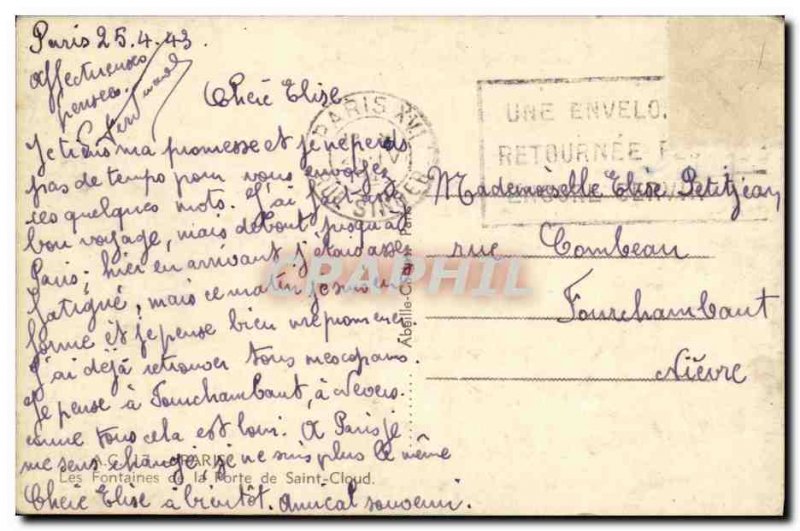 Paris 25.4.43.
affectueuses
pensées.
Chère Elise
Je tiens ma promesse et je ne perds
pas de temps pour vous envoyer
ces quelques mots. J'ai fait
bon voyage, mais debout jusqu'à
Paris; hier en arrivant j'étais assez
fatigué, mais ce matin je suis en
forme et je pense bien me promener
J'ai déjà retrouver tous mes copains.
Je pense à Fourchambault, à Nevers.
comme tous cela est loin. A Paris je
me sens changé, je ne suis plus le même
Chère Elise à bientôt. Amical souvenir.
A.C. PARIS
Les Fontaines de la Porte de Saint-Cloud.
PARIS XVI
RUE SINGER
UNE ENVELO
RETOURNÉE
ENCORE SERVIR
Mademoiselle Elise Petitjean
rue Combeau
Fourchambault
Nièvre
CARTAPHIL